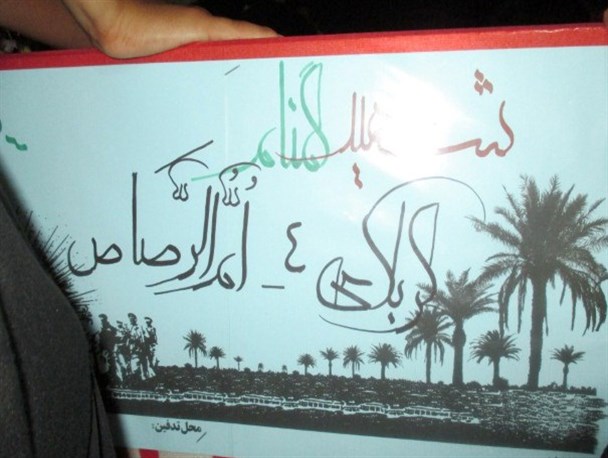 شهید گمنام
کربلای ٤ - اُمُّ الرَّصاص
محل تدفین: